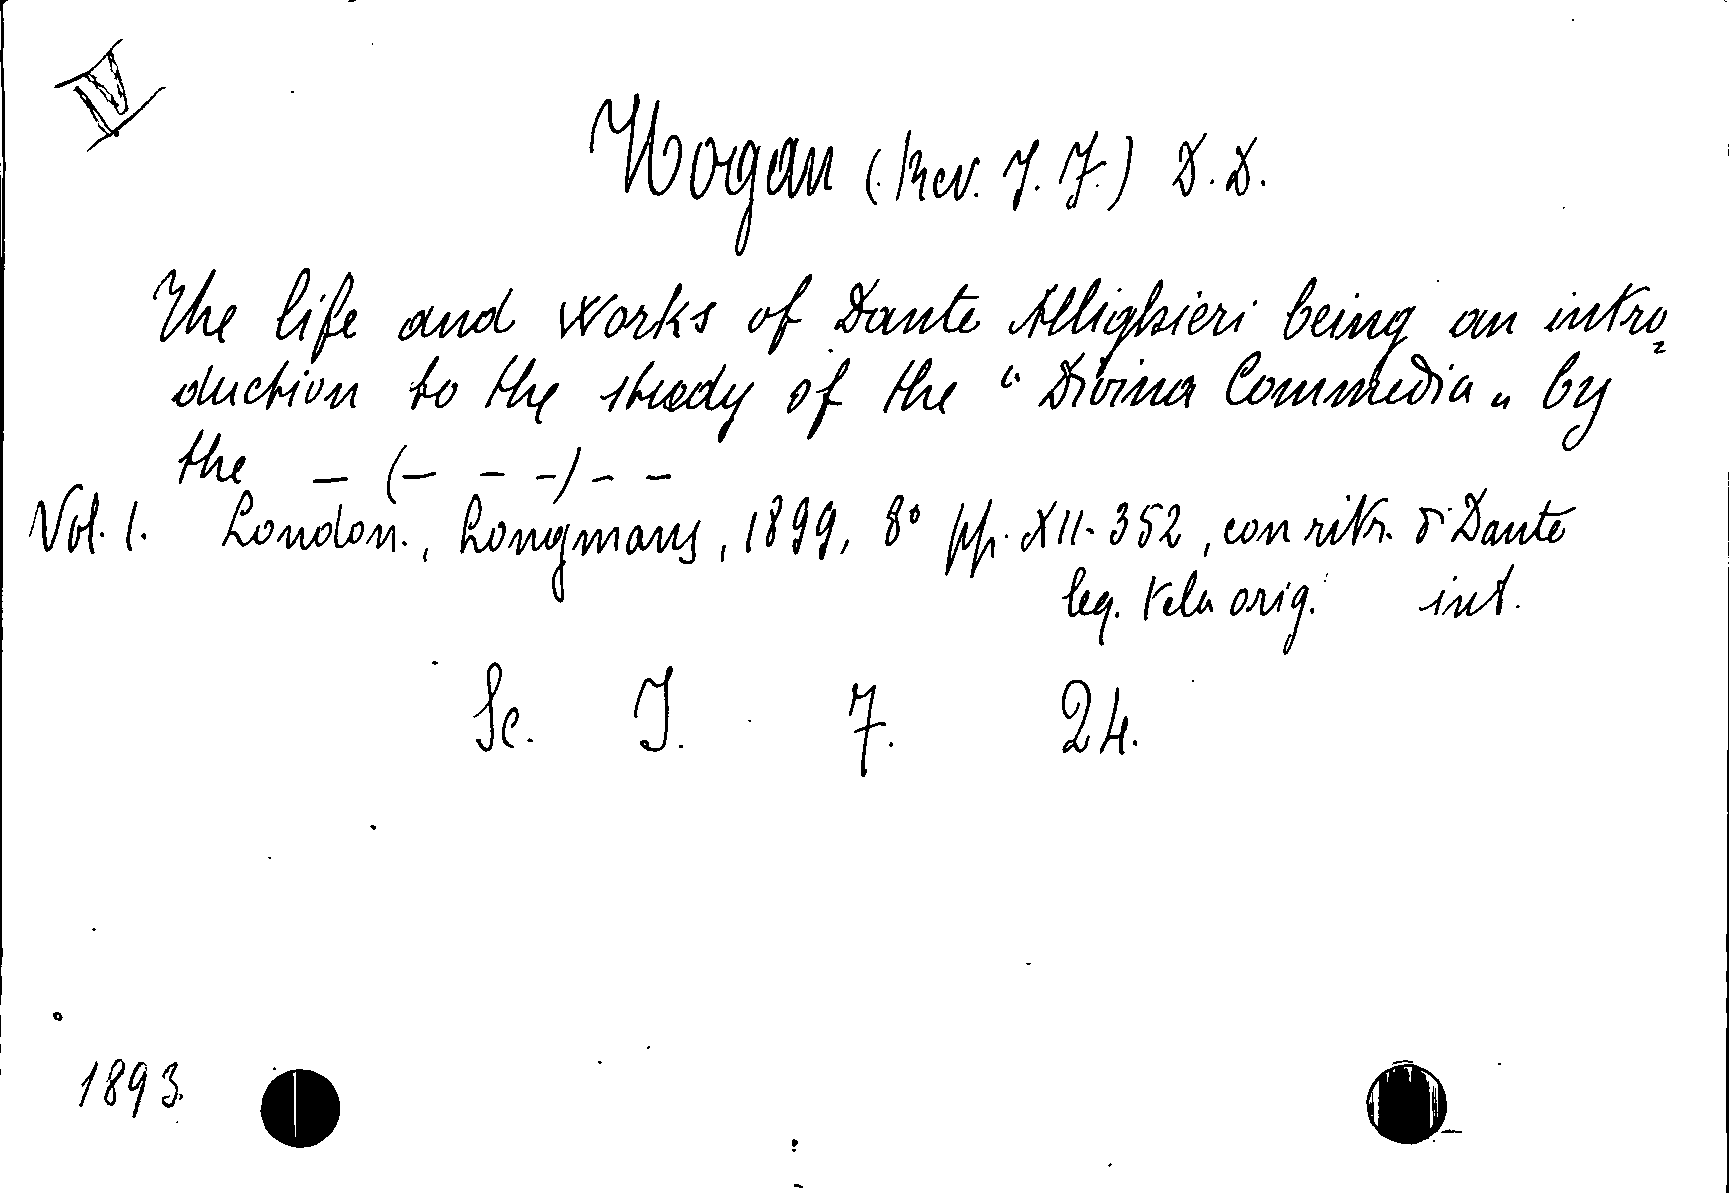 IV
Hogan (Rev. J. F.) D. D.
The life and works of Dante Allighieri being an intro=
duction to the study of the "Divina Commedia" by
the — (— — —) — —
Vol. I. London., Longmans, 1899, 8° pp. XII-352, con ritr. di Dante
leg. tela orig. int.
Sc. I. 7. 24.
1893.